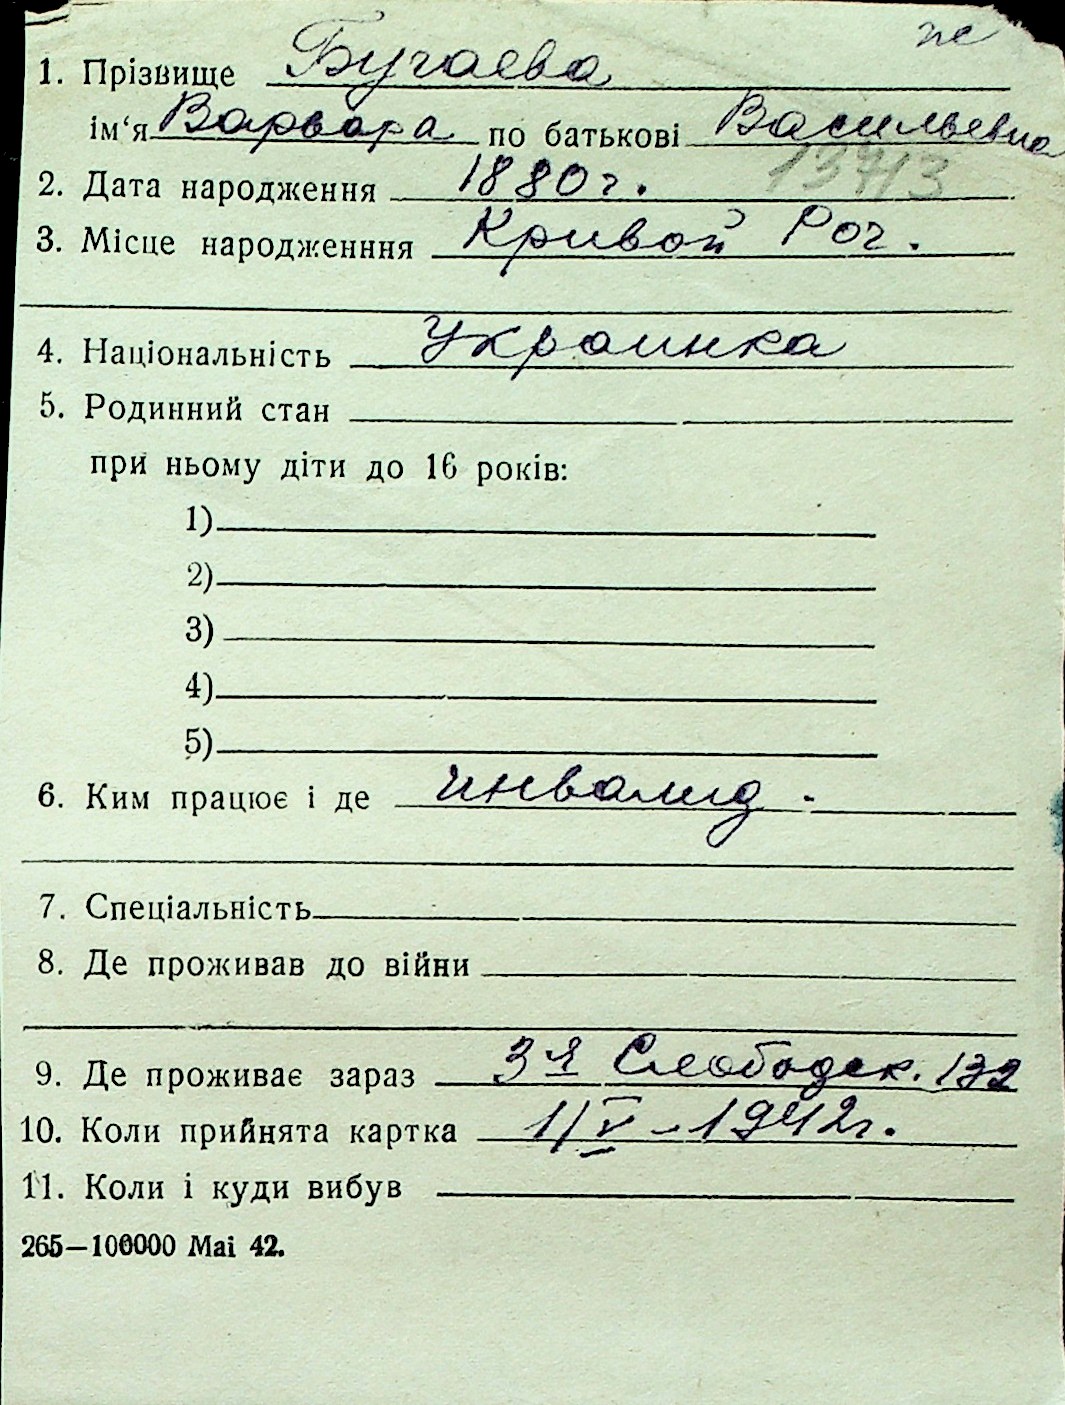 ж
1. Прізвище Бугаева
ім‘я Варвара по батькові Васильевна
13713
2. Дата народження 1880г.
3. Місце народженння Кривой Рог.
4. Національність Украинка
5. Родинний стан
при ньому діти до 16 років:
1)
2)
3)
4)
5)
6. Ким працює і де инвалид.
7. Спеціальність
8. Де проживав до війни
9. Де проживає зараз 3я Слободск. 132
10. Коли прийнята картка 1/V - 1942г.
11. Коли і куди вибув
265—100000 Mai 42.